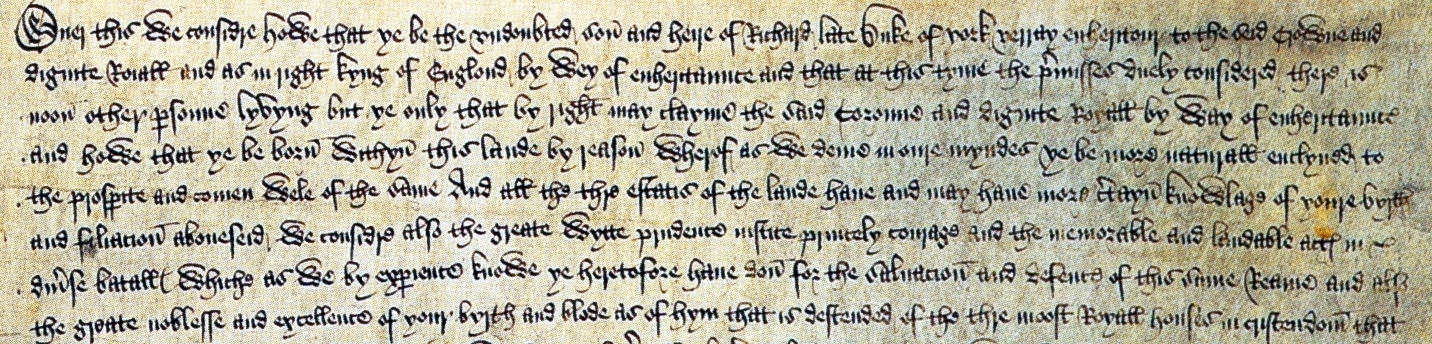 Over this We considre howe that ye be the undoubted son̄ and heire of Richard late Duke of york verray enheritour to the seid Crowne and
dignite Roiall and as in right kyng of Englond by Wey of enheritaunce and that at this tyme the p̄misses duely considered there is
noon̄ other psonne lyvyng but ye only that by right may clayme the said Coronne and dignite Royall by Way of enheritaunce
and howe that ye be born̄ Withyn̄ this lande by reason̄ Wherof as We deme in oure myndes ye be more naturall enclyned to
the prospite and comen Wele of the same And all the thre estatis of the lande have and may have more c̄tayn̄ knowlage of youre byrth
and filiacion̄ aboveseid We considre also the greate Wytte prudence justice princely courage and the memorable and laudable actꝭ in
div̄se bataillꝭ Whiche as We by expience knowe ye heretofore have don̄ for the salvacion̄ and defence of this same Reame and also
the greate noblesse and excellence of your byrth and blode as of hym that is descended of the thre moost Royall houses in cristendom̄ that